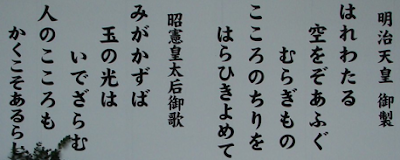 明治天皇 御製
はれわたる
空をぞあふぐ
むらぎもの
こころのちりを
はらひきよめて
昭憲皇太后御歌
みがかずば
玉の光は
いでざらむ
人のこころも
かくこそあるら